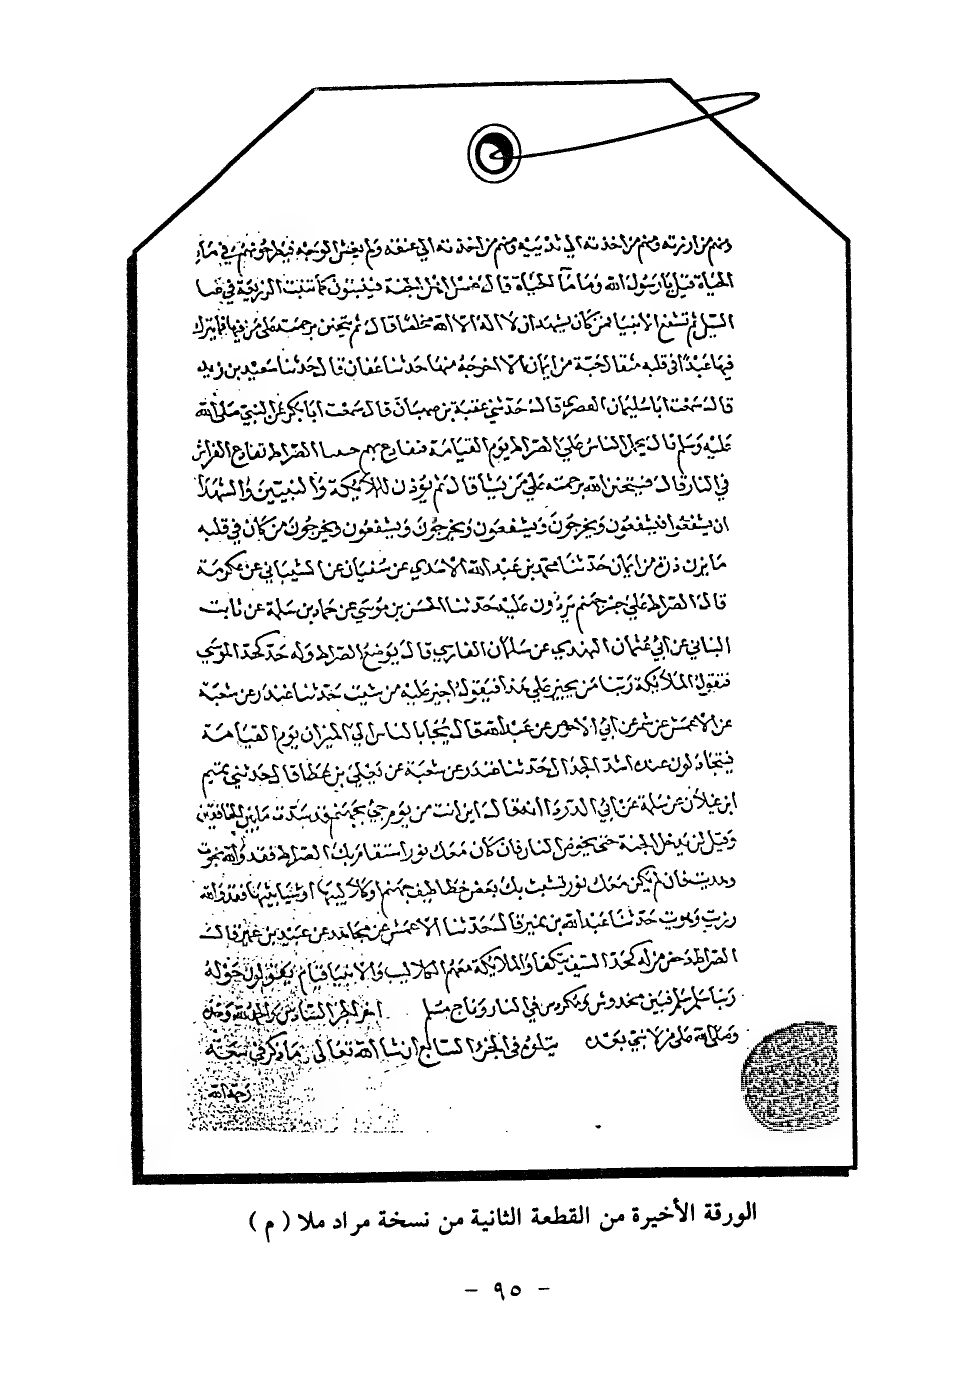 ومنهم من ازرته ومنهم من اخذته الي ثدييه ومنهم من اخذته الي عنقه ولم يغش الوجه فيطرحونهم في ماء
الحياة قيل يا رسول الله وما ما الحياة قال غسل اهل الجنة فينبتون كما تنبت الزريعة في غثا
السيل ثم تشفع الانبيا فمن كان يشهد ان لا اله الا الله مخلصا قال ثم يتحنن برحمته علي من فيها فما يترك
فيها عبدا في قلبه مثقال حبة من ايمان الا اخرجه منها حدثنا عفان قال حدثنا سعيد بن زيد
قال سمعت ابا سليمان العصري قال حدثني عقبة بن صهبان قال سمعت ابا بكر عن النبي صلى الله
عليه وسلم قال يحمل الناس علي الصراط يوم القيامة فتقادع بهم الصراط تقادع الفراش
في النار قال فيتحنن الله برحمته علي من يشا قال ثم يوذن للملائكة والنبيين والشهدا
ان يشفعوا فيشفعون ويخرجون ويشفعون ويخرجون ويشفعون ويخرجون من كان في قلبه
ما يزن ذرة من ايمان حدثنا محمد بن عبد الله الاسدي عن سفيان عن الشيباني عن عكرمة
قال الصراط علي جسر جهنم يردون عليه حدثنا الحسن بن موسي عن حماد بن سلمة عن ثابت
البناني عن ابي عثمان النهدي عن سلمان الفارسي قال يوضع الصراط وله حد كحد الموسي
فتقول الملائكة ربنا من يجيز علي هذا فيقول اجيز عليه من شيت حدثنا غندر عن شعبة
عن الاعمش عن شمر عن ابي الاحوص عن عبد الله قال يجا بالناس الي الميزان يوم القيامة
فيتجادلون عنده اشد الجدال حدثنا غندر عن شعبة عن يعلي بن عطا قال حدثني تميم
ابن غيلان عن سلمة عن ابي الدردا انه قال اين انت من يوم جي بجهنم قد سدت ما بين الخافقين
وقيل لن يدخل الجنة حتى يخوض النار فان كان معك نور استقام بك الصراط فقد والله نجوت
وهديت فان لم يكن معك نور تشبث بك بعض خطاطيف جهنم او كلاليبها او شبابيثها فقد والله
رديت وهويت حدثنا عبد الله بن نمير قال حدثنا الاعمش عن مجاهد عن عبيد بن عمير قال
الصراط دحض مزلة كحد السيف يتكفا والملائكة معهم الكلاليب والانبيا قيام يقولون حوله
ربنا سلم سلم فبين مخدوش ومكردس في النار وناج مسلم اخر الجز السادس والحمد لله وحده
وصلى الله على من لا نبي بعده يتلوه في الجزء السابع ان شا الله تعالى ما ذكر في سعة
رحمة الله
الورقة الأخيرة من القطعة الثانية من نسخة مراد ملا ( م )
- ٩٥ -